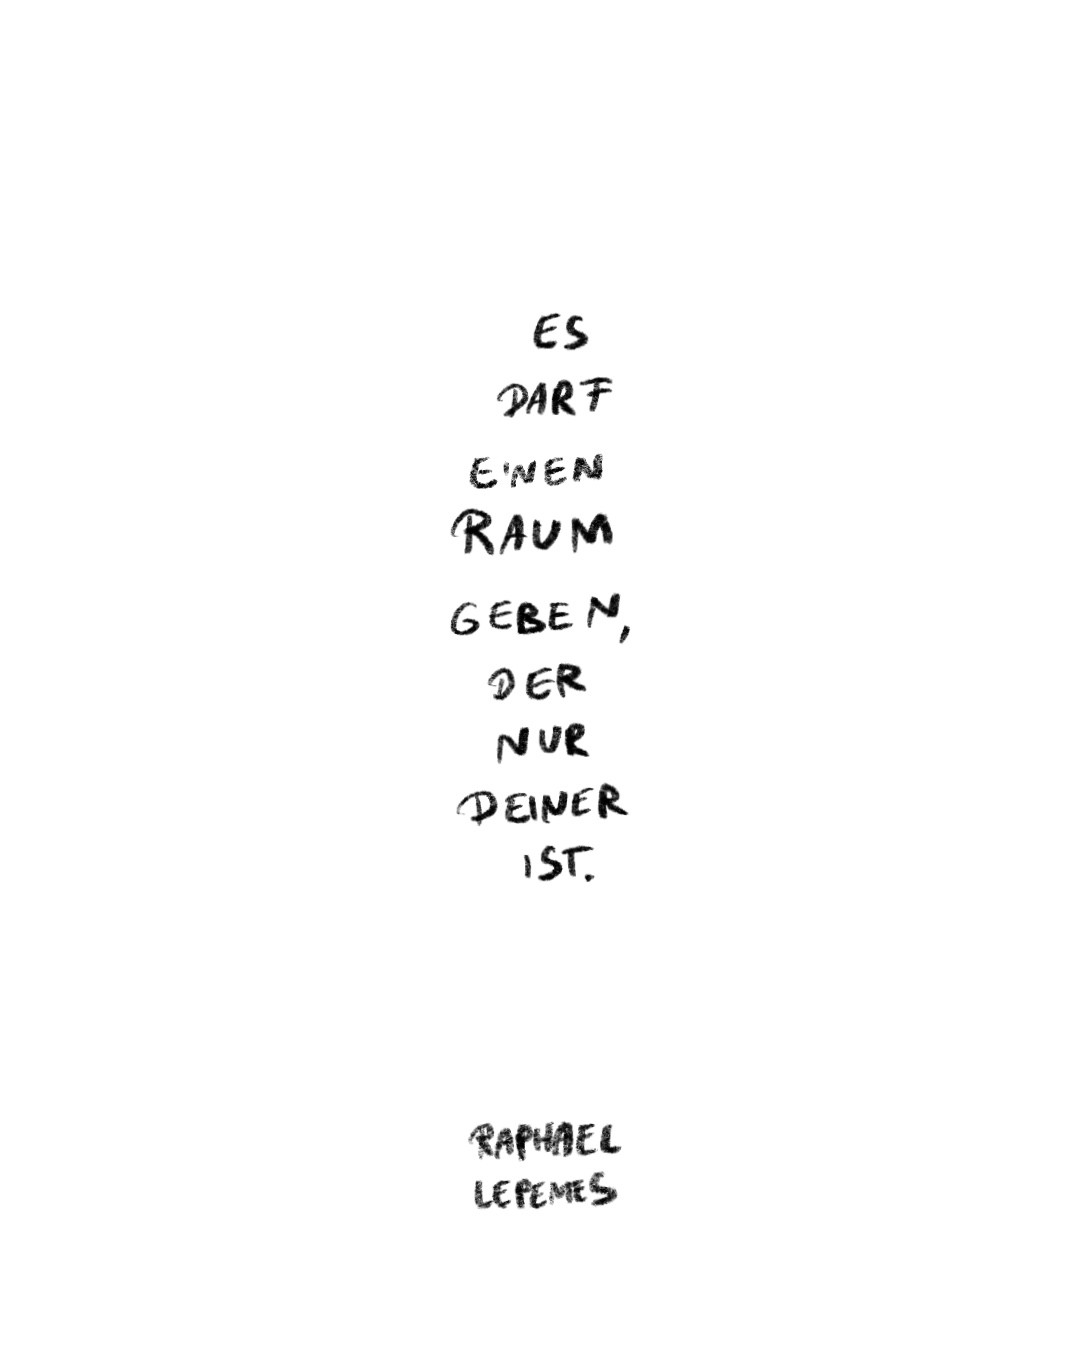 ES
DARF
EINEN
RAUM
GEBEN,
DER
NUR
DEINER
IST.
RAPHAEL
LEPENIES